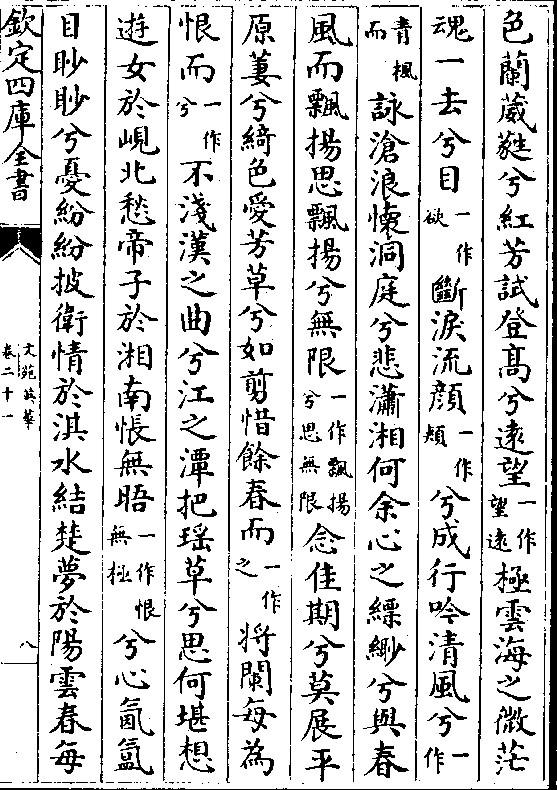 色蘭葳蕤兮紅芳試登髙兮遠望一作望遠極雲海之微茫
魂一去兮目一作欲斷淚流顔一作頰兮成行吟清風兮一作
青楓而詠滄浪懐洞庭兮悲瀟湘何余心之縹緲兮與春
風而飄揚思飄揚兮無限一作飄揚兮思無限念佳期兮莫展平
原萋兮綺色愛芳草兮如剪惜餘春而一作之將闌每為
恨而一作兮不淺漢之曲兮江之潭把瑶草兮思何堪想
遊女於峴北愁帝子於湘南悵無晤一作恨無極兮心氤氳
目眇眇兮憂紛紛披衛情於淇水結楚夢於陽雲春每
欽定四庫全書
文苑英華
卷二十一
八